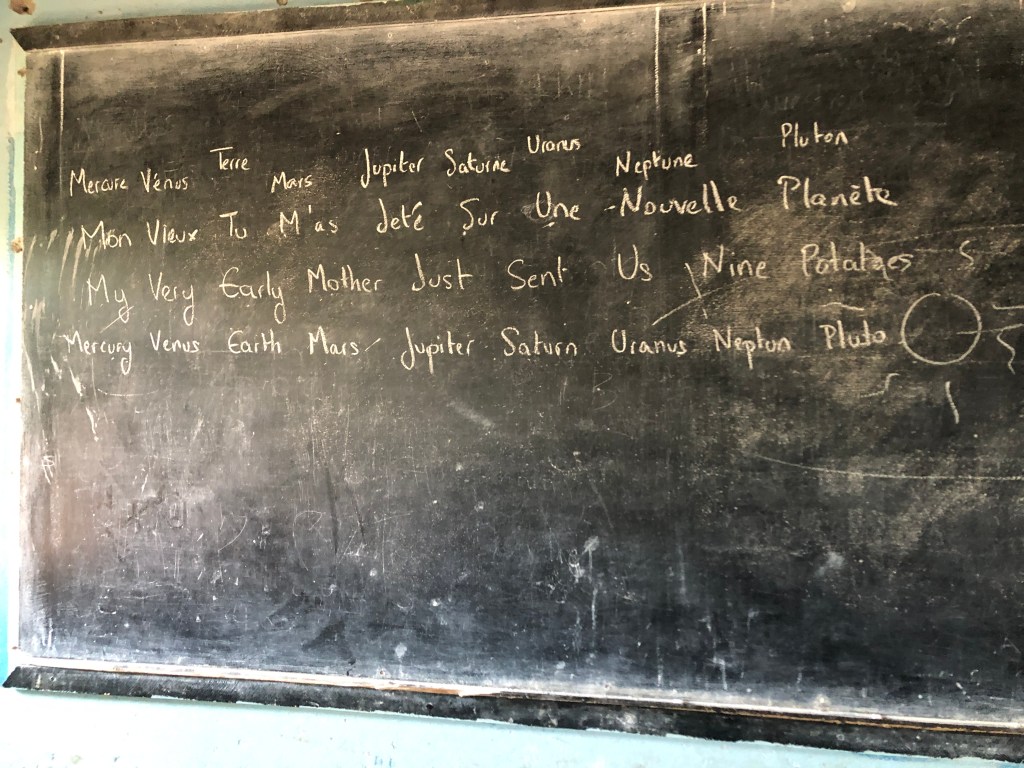 Mercure Vénus Terre Mars Jupiter Saturne Uranus Neptune Pluton
Mon Vieux Tu M'as Jeté Sur Une Nouvelle Planète
My Very Early Mother Just Sent Us Nine Potatoes
Mercury Venus Earth Mars Jupiter Saturn Uranus Neptun Pluto